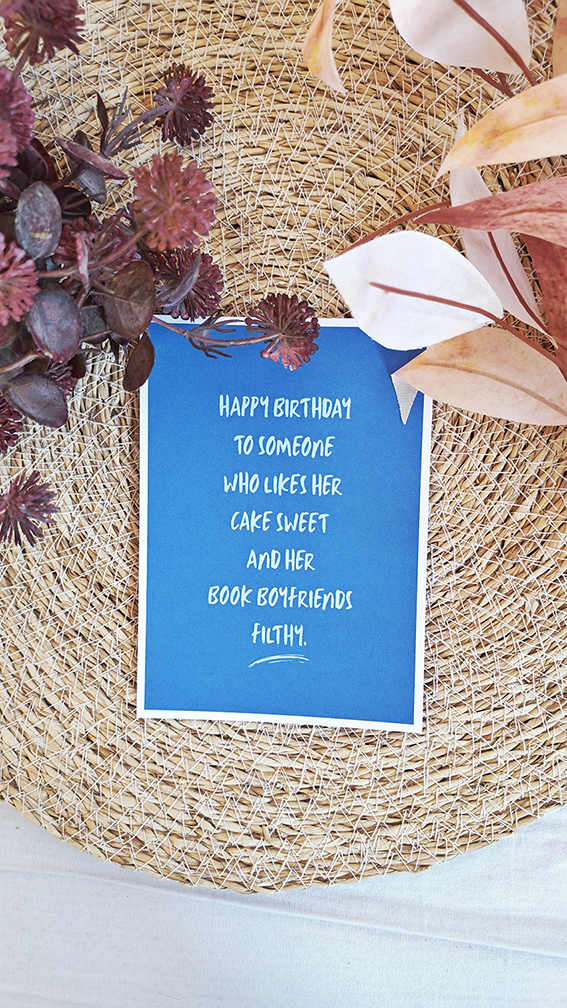 HAPPY BIRTHDAY
TO SOMEONE
WHO LIKES HER
CAKE SWEET
AND HER
BOOK BOYFRIENDS
FILTHY.